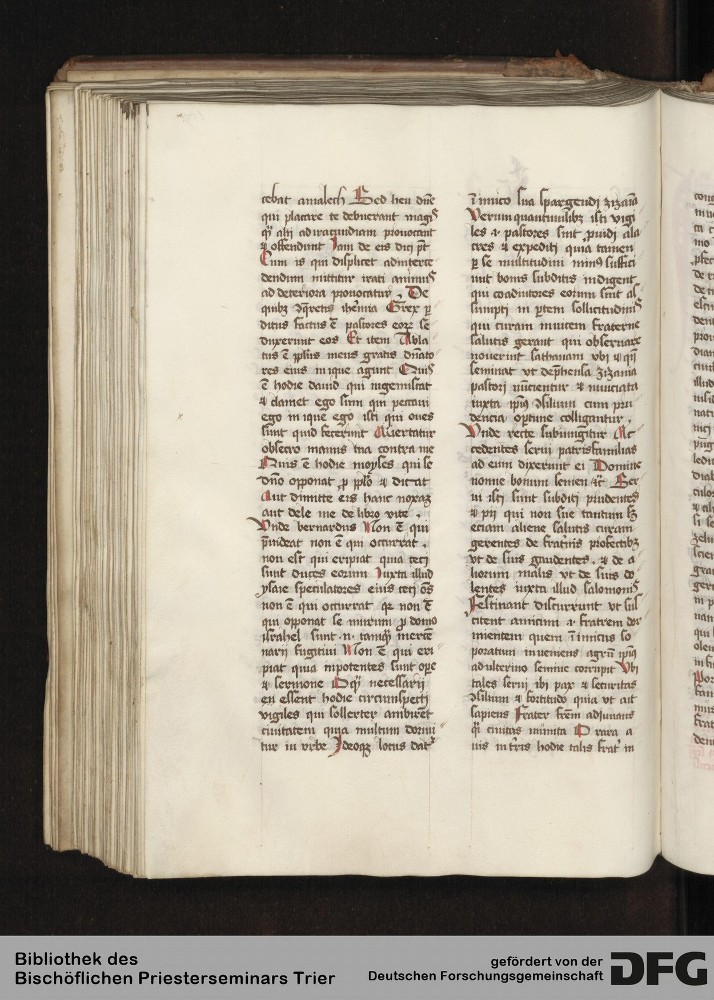 cebat amalech Sed heu dūe
qui placare te debuerant magis
qͣ alij ad iracundiam prouocant
⁊ offendunt Iam de eis dici pt̄
Cum is qui displicet ad interce
dendum mittitur irati animus
ad deteriora prouocatur . De
quibȝ Grex ꝑ
ditus factus ē pastores eoꝝ se
duxerunt eos Et item Abla
tus ē pplūs meus gratis dn̄ato
res eius inique agunt Quis
ē hodie dauid qui ingemiscat
⁊ clamet ego sum qui peccaui
ego inique ego isti qui oues
sunt quid fecerunt Auertatur
obsecro manus tua contra me
Quis ē hodie moyses qui se
dn̄o opponat ꝓ pplō ⁊ dicat
Aut dimitte eis hanc noxaȝ
aut dele me de libro vite .
Vnde bernardus Non ē qui
p̄uideat non ē qui occurrat .
non est qui eripiat quia ceci
sunt duces eorum Iuxta illud
ysaie speculatores eius ceci oēs
non ē qui occurrat qꝛ non ē
qui opponat se murum ꝓ domo
israhel sunt .n. tamqͣ merce
narij fugitiui Non ē qui eri
piat quia inpotentes sunt oꝑe
⁊ sermone O qͣ necessarij
eā essent hodie circumspecti
vigiles qui sollerter ambirēt
ciuitatem quia multum dormi
tur in vrbe Ideoqȝ locus datʳ
īimico sua spargendi zizania
Verum quantumlibȝ isti vigi
les ⁊ pastores sint ꝓuidi ala
cres ⁊ expediti quia tamen
ꝑ se multitudini minꝰ suffici
unt bonis subditis indigent
qui coadiutores eorum sint as
sumpti in ꝑtem sollicitudinis
qui curam inuicem fraterne
salutis gerant qui obseruare
nouerint sathanam vbi ⁊ qͫ
seminat vt dep̄hensa zizania
pastori nūcientur ⁊ nunciata
iuxta ipīus ꝯsilium cum pru
dencia optime colligantur .
Vnde recte subiungitur Ac
cedentes serui patrisfamilias
ad eum dixerunt ei Domine
nonne bonum semen ⁊c̄ Ser
ui isti sunt subditi prudentes
⁊ pij qui non sue tantum sȝ
eciam aliene salutis curam
gerentes de fratrūs profectibȝ
vt de suis gaudentes . ⁊ de a
liorum malis vt de suis do
lentes iuxta illud salomonis
Festinant discurrunt vt sus
citent amicum ⁊ fratrem dor
mientem quem īimicus so
poratum inueniens agrū ipīus
adulterino semine corrupit Vbi
tales serui ibi pax ⁊ securitas
ꝯsilium ⁊ fortitudo quia vt ait
sapiens Frater frēm adiuuans
qͣ ciuitas munita O rara a
uis in tr̄is hodie talis fratʳ in
Bibliothek des
Bischöflichen Priesterseminars Trier
gefördert von der
Deutschen Forschungsgemeinschaft
DFG